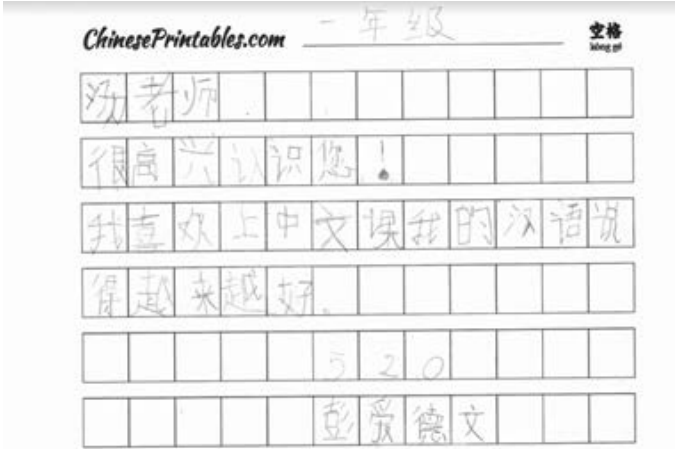 ChinesePrintables.com 一年级 空格
kòng gé
汤老师
很高兴认识您！
我喜欢上中文课我的汉语说
得越来越好。
520
彭爱德文